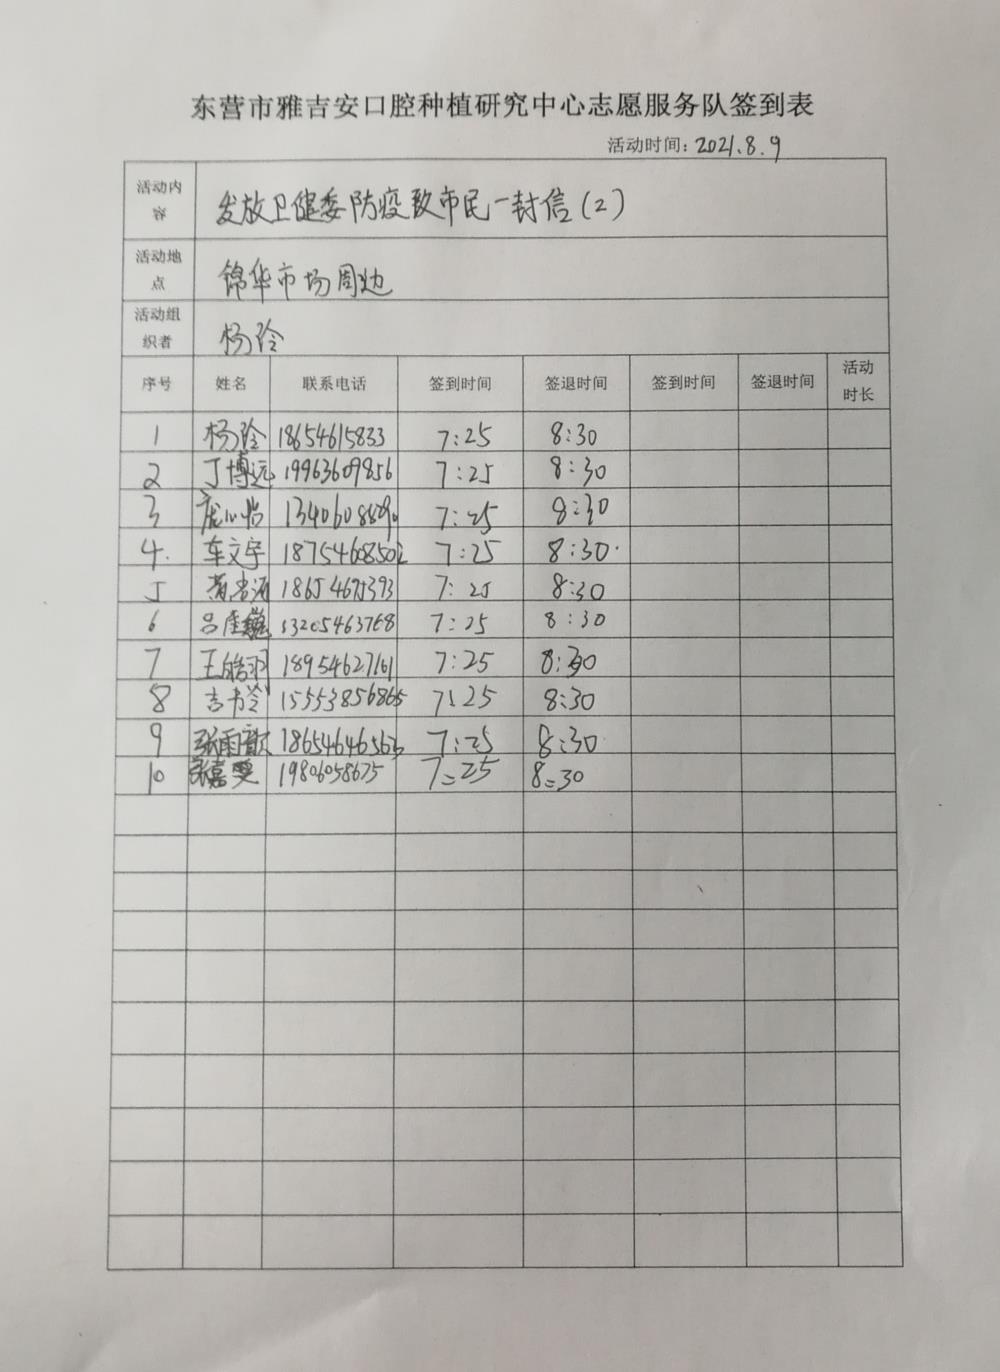 东营市雅吉安口腔种植研究中心志愿服务队签到表
活动时间: 2021.8.9
活动内容 发放卫健委防疫致市民一封信(2)
活动地点 锦华市场周边
活动组织者 杨玲
序号 姓名 联系电话 签到时间 签退时间 签到时间 签退时间 活动时长
1 杨玲 18654615833 7:25 8:30
2 丁博远 19963609856 7:25 8:30
3 庞心怡 7:25 8:30
4. 车文宇 18754608502 7:25 8:30
5 7:25 8:30
6 13205463768 7:25 8:30
7 王皓羽 18954627161 7:25 8:30
8 15553856865 7:25 8:30
9 张雨歆 18654646563 7:25 8:30
10 19806058675 7:25 8:30